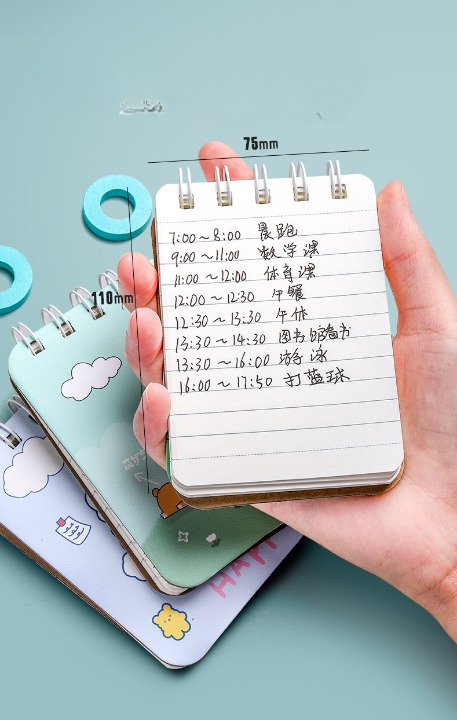 75mm
110mm
7:00～8:00 晨跑
9:00～11:00 数学课
11:00～12:00 体育课
12:00～12:30 午餐
12:30～13:30 午休
13:30～14:30 图书馆看书
13:30～16:00 游泳
16:00～17:50 打蓝球
HAPP